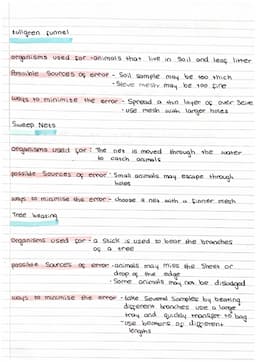 tullgren funnel
organisms used for - animals that live in soil and leaf litter
possible sources of error - Soil sample may be too thick
- Sieve mesh may be too fine
ways to minimise the error - Spread a thin layer of over seive
- use mesh with larger holes
Sweep Nets
organisms used for : The net is moved through the water
to catch animals
possible sources of error - Small animals may escape through
holes
ways to minimise the error - choose a net with a finner mesh
Tree beating
Organisms used for - a Stick is used to bear the branches
of a tree
possible Sources of error - animals may miss the sheet or
drop of the edge
- Some animals may not be dislodged
ways to minimise the error - take several samples by bearing
different branches use a large
tray and quickly transfer to bag
- use beamers of different
lengths